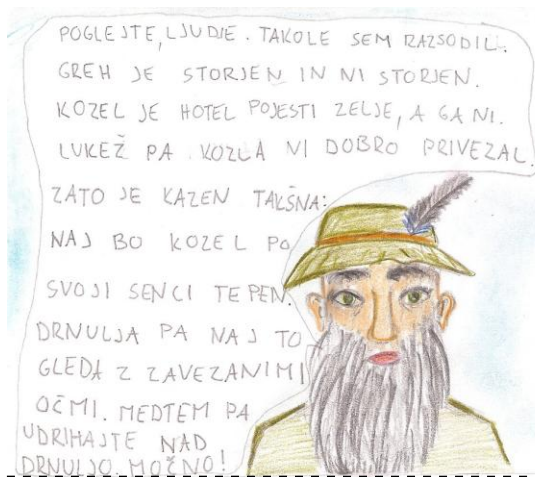 POGLEJTE, LJUDJE. TAKOLE SEM RAZSODIL:
GREH JE STORJEN IN NI STORJEN.
KOZEL JE HOTEL POJESTI ZELJE, A GA NI.
LUKEŽ PA KOZLA NI DOBRO PRIVEZAL.
ZATO JE KAZEN TAKŠNA:
NAJ BO KOZEL PO
SVOJI SENCI TEPEN.
DRNULJA PA NAJ TO
GLEDA Z ZAVEZANIMI
OČMI. MEDTEM PA
UDRIHAJTE NAD
DRNULJO. MOČNO!